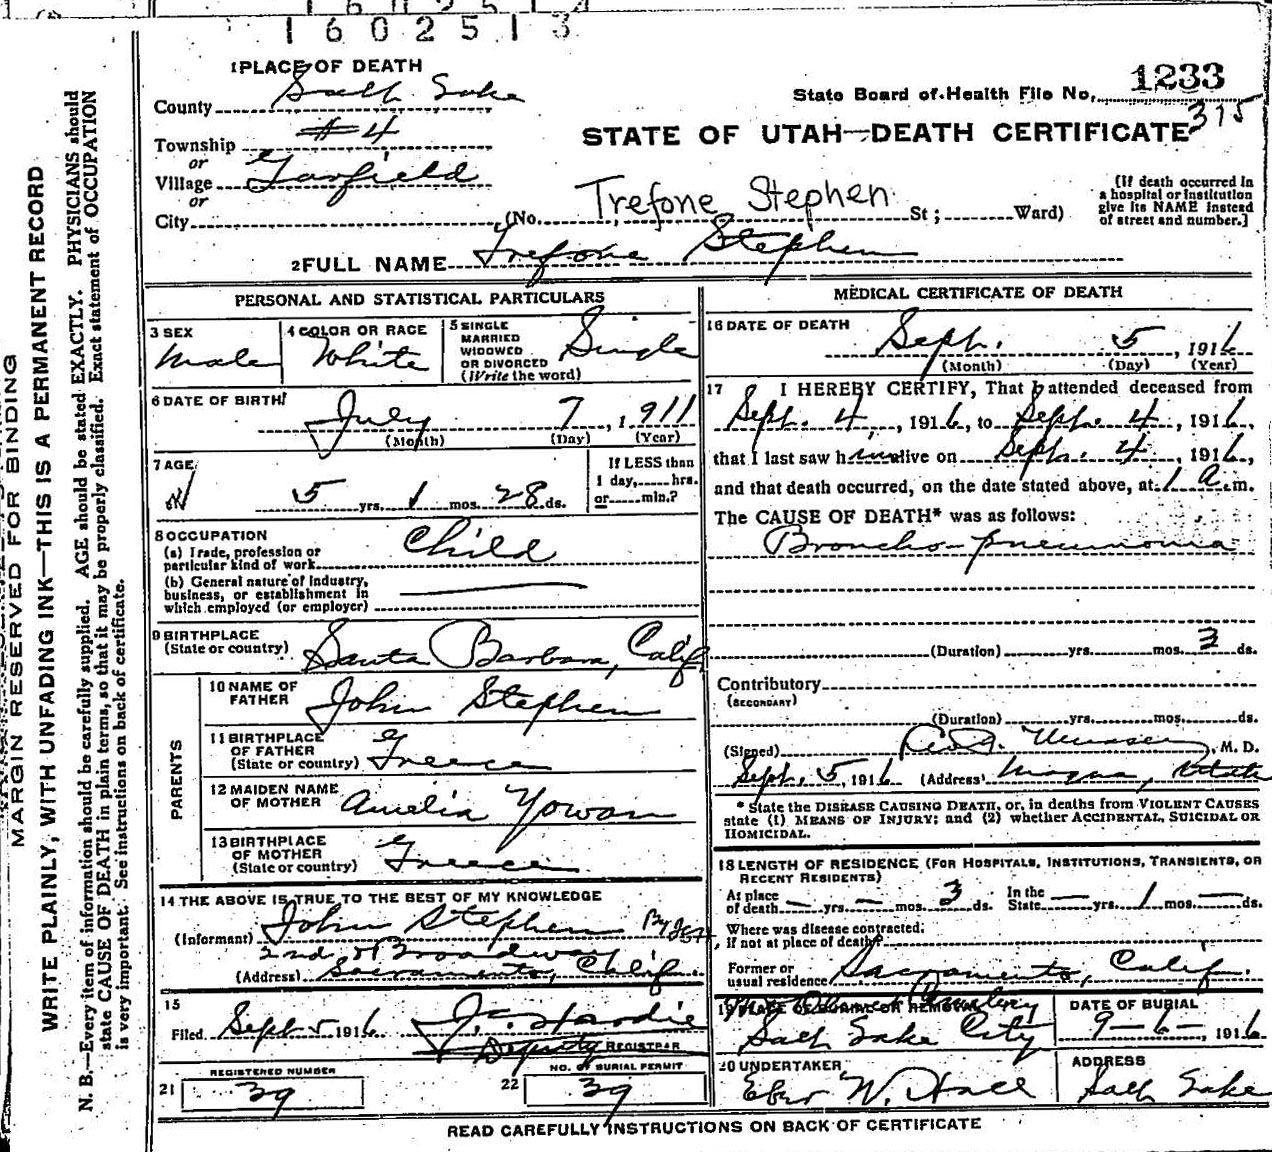 1602513
1 PLACE OF DEATH
County Salt Lake
Township #4
or
Village Garfield
or
City (No. Trefone Stephen St; Ward)
State Board of Health File No. 1233
315
STATE OF UTAH—DEATH CERTIFICATE
[If death occurred in a hospital or institution give its NAME instead of street and number.]
2 FULL NAME Trefone Stephen
PERSONAL AND STATISTICAL PARTICULARS
3 SEX Male
4 COLOR OR RACE White
5 SINGLE MARRIED WIDOWED OR DIVORCED (Write the word) Single
6 DATE OF BIRTH July 7, 1911
(Month) (Day) (Year)
7 AGE 5 yrs. 1 mos. 28 ds.
If LESS than 1 day, hrs. or min.?
8 OCCUPATION
(a) Trade, profession or particular kind of work Child
(b) General nature of Industry, business, or establishment in which employed (or employer)
9 BIRTHPLACE (State or country) Santa Barbara, Calif.
PARENTS
10 NAME OF FATHER John Stephen
11 BIRTHPLACE OF FATHER (State or country) Greece
12 MAIDEN NAME OF MOTHER Amelia Yowan
13 BIRTHPLACE OF MOTHER (State or country) Greece
14 THE ABOVE IS TRUE TO THE BEST OF MY KNOWLEDGE
(Informant) John Stephen By
2nd & Broadway
(Address) Sacramento, Calif.
15
Filed Sept 5 1916 J. E. Hardie
Deputy REGISTRAR
REGISTERED NUMBER
21 39
NO. of BURIAL PERMIT
22 39
MEDICAL CERTIFICATE OF DEATH
16 DATE OF DEATH Sept. 5, 1916
(Month) (Day) (Year)
17 I HEREBY CERTIFY, That I attended deceased from
Sept. 4, 1916, to Sept. 4, 1916,
that I last saw him alive on Sept. 4, 1916,
and that death occurred, on the date stated above, at 1 a.m.
The CAUSE OF DEATH* was as follows:
Broncho-pneumonia
(Duration) yrs. mos. 3 ds.
Contributory
(SECONDARY)
(Duration) yrs. mos. ds.
(Signed) M. D.
Sept. 5, 1916 (Address) Magna, Utah
* State the DISEASE CAUSING DEATH, or, in deaths from VIOLENT CAUSES
state (1) MEANS OF INJURY; and (2) whether ACCIDENTAL, SUICIDAL OR
HOMICIDAL.
18 LENGTH OF RESIDENCE (FOR HOSPITALS, INSTITUTIONS, TRANSIENTS, OR
RECENT RESIDENTS)
At place of death — yrs. — mos. 3 ds. In the State — yrs. 1 mos. — ds.
Where was disease contracted,
if not at place of death?
Former or usual residence Sacramento, Calif.
19 PLACE OF BURIAL OR REMOVAL
Mt. Olivet Cemetery
Salt Lake City
DATE OF BURIAL
9-6-, 1916
20 UNDERTAKER
Eber W. Hall
ADDRESS
Salt Lake
READ CAREFULLY INSTRUCTIONS ON BACK OF CERTIFICATE
MARGIN RESERVED FOR BINDING
WRITE PLAINLY, WITH UNFADING INK—THIS IS A PERMANENT RECORD
N. B.—Every item of information should be carefully supplied. AGE should be stated EXACTLY. PHYSICIANS should
state CAUSE OF DEATH in plain terms, so that it may be properly classified. Exact statement of OCCUPATION
is very important. See instructions on back of certificate.